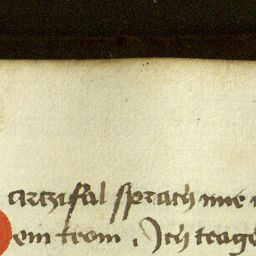 artzifal sprach mie
ein trom . Ich trage